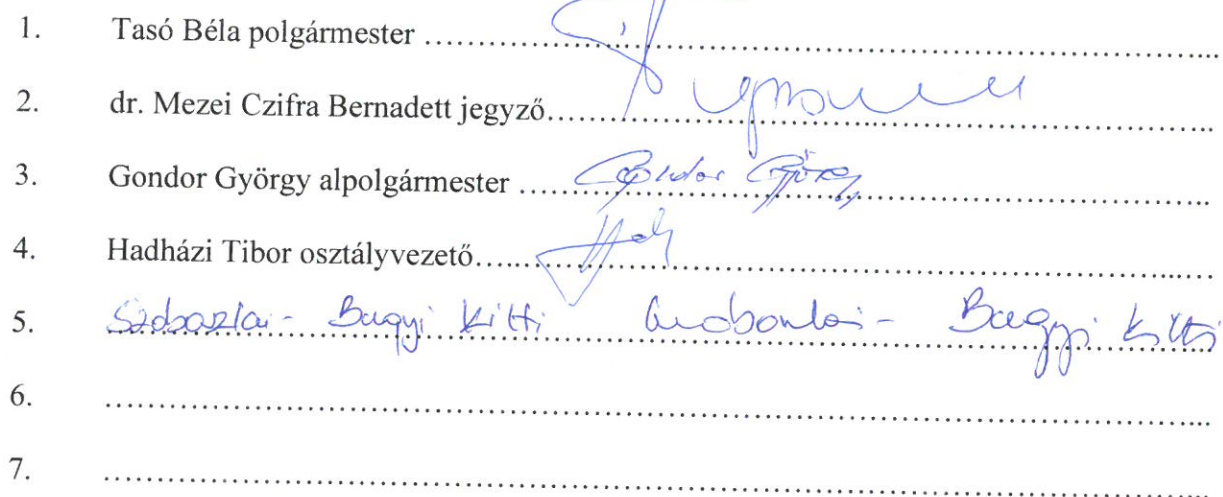 1. Tasó Béla polgármester ........................................
2. dr. Mezei Czifra Bernadett jegyző........................................
3. Gondor György alpolgármester ........................................ Gondor György
4. Hadházi Tibor osztályvezető........................................
5. Szoboszlai - Bagyi Kitti Szoboszlai - Bagyi Kitti
6. ........................................
7. ........................................